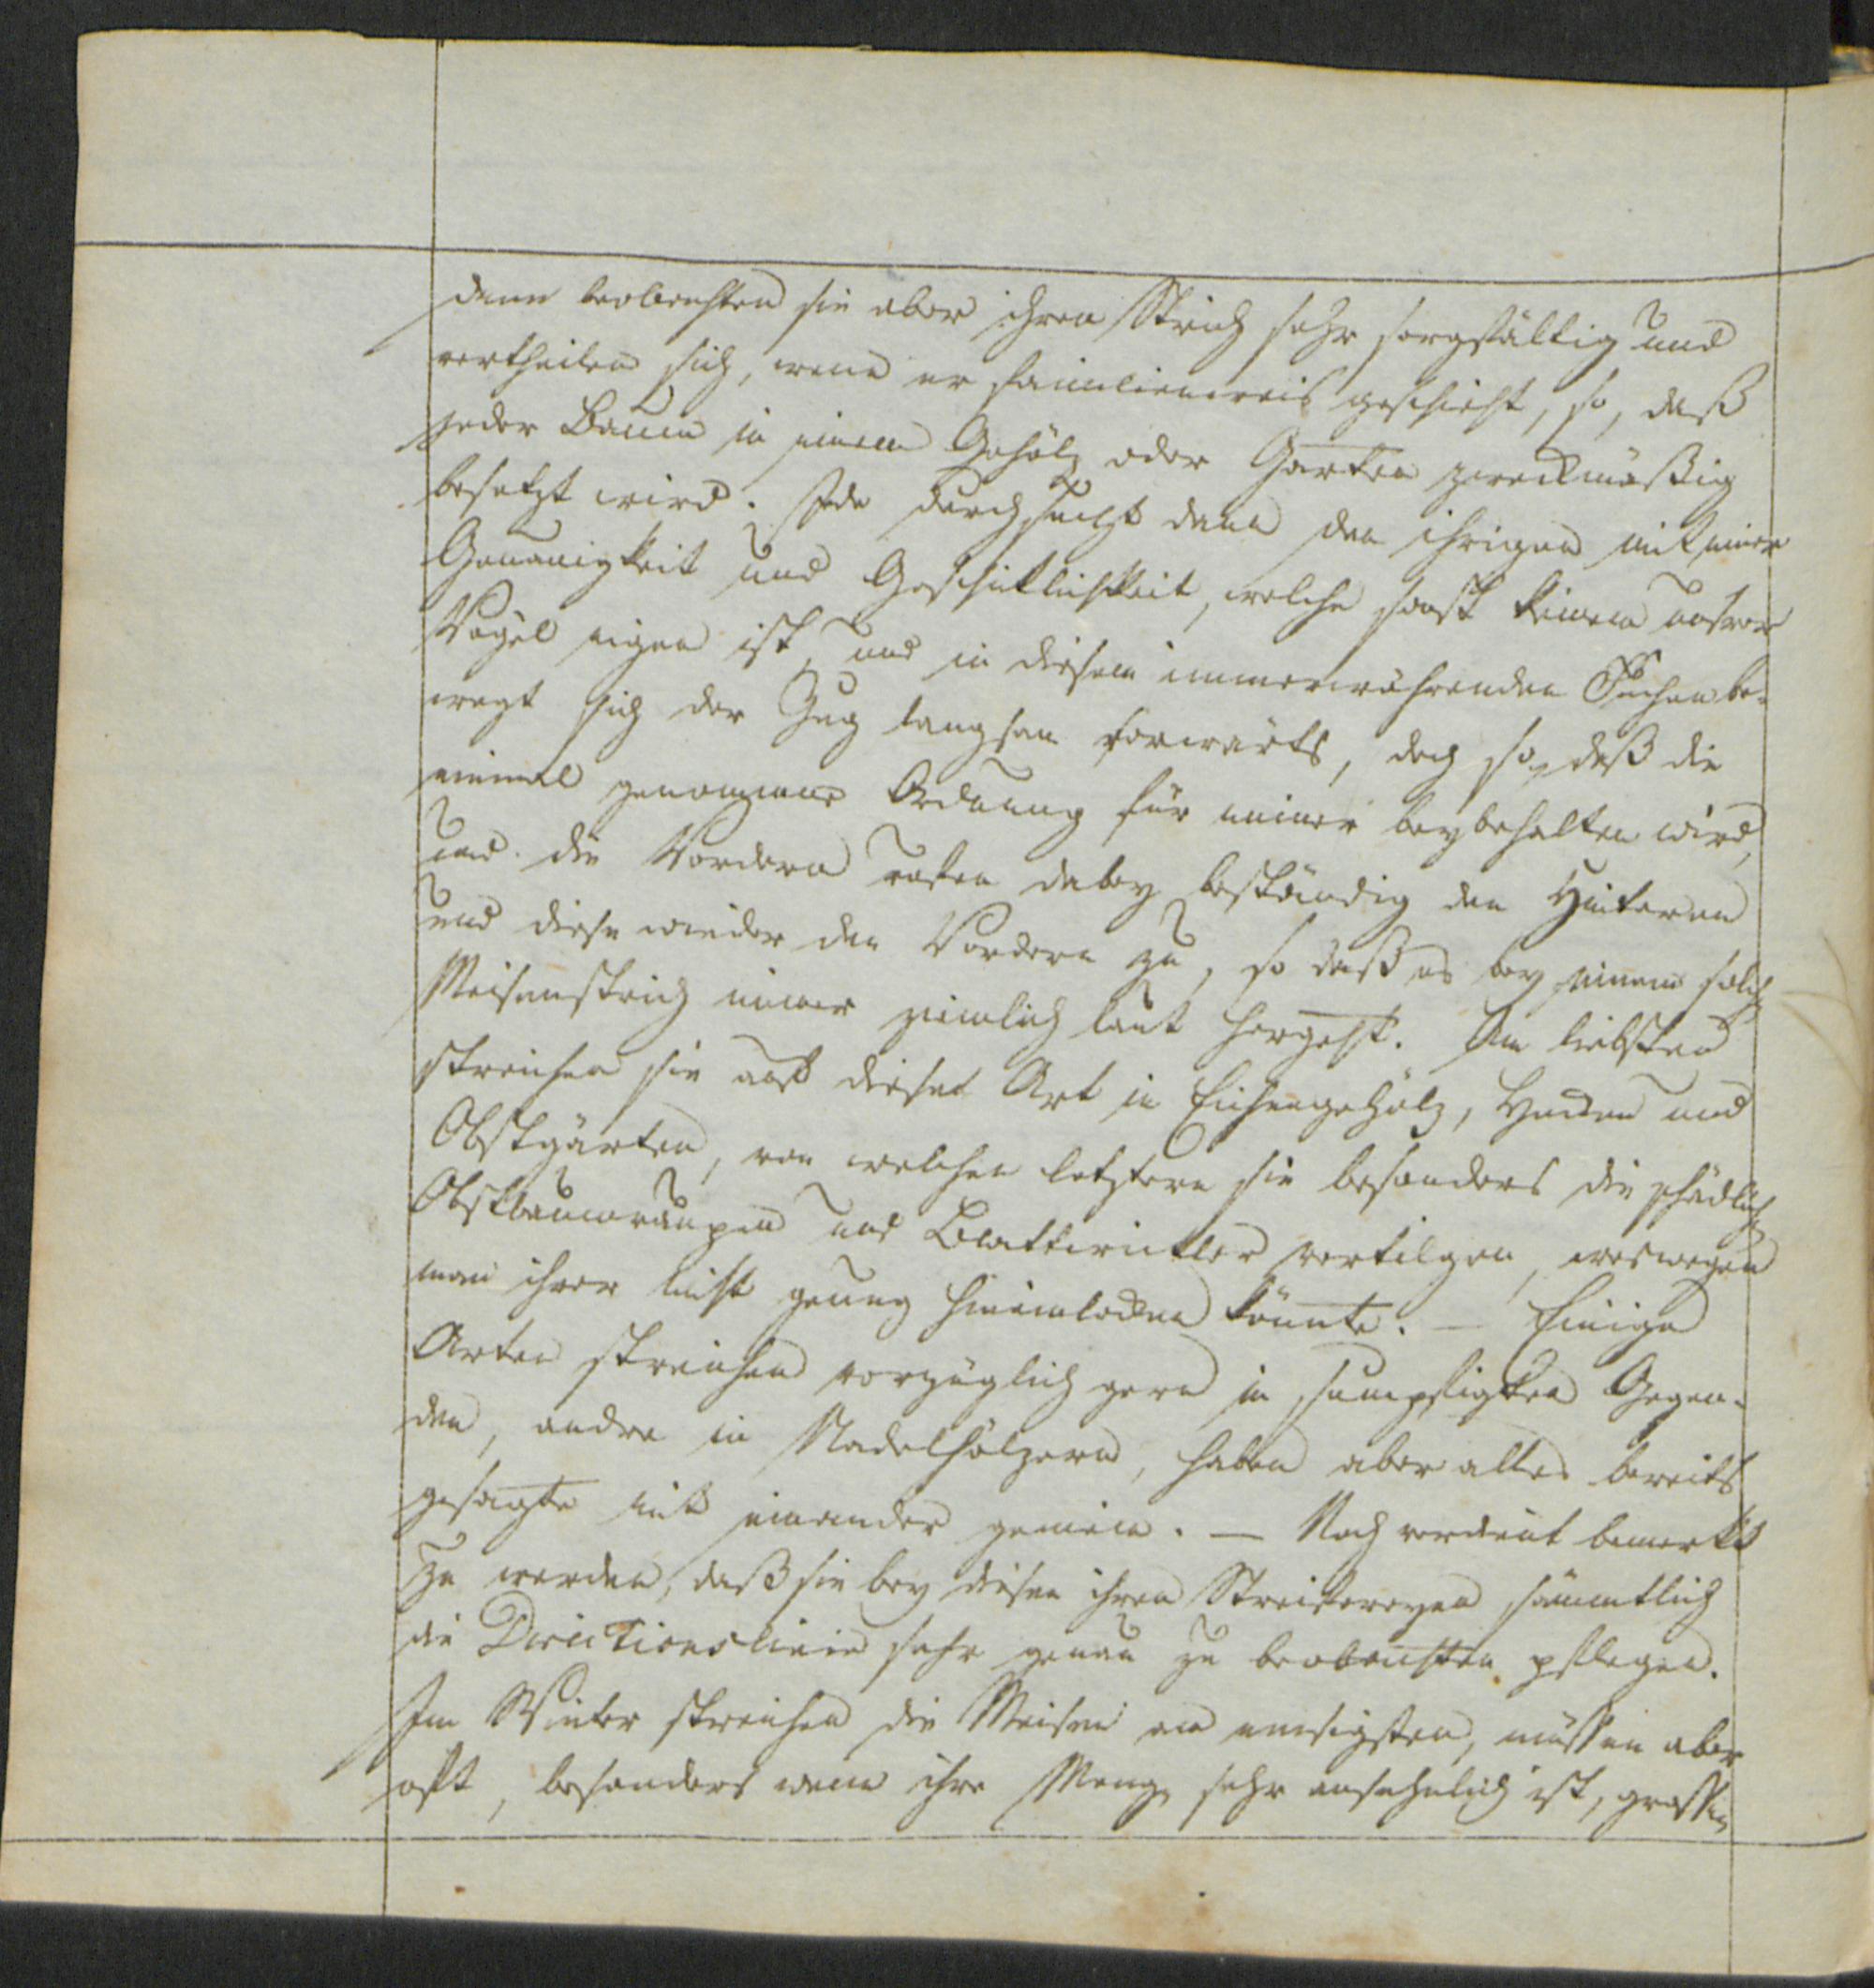 dann beobachten sie aber ihren Strich sehr sorgfältig und
vertheilen sich, wenn er familienweis geschieht, so, daß
jeder Baum in einem Gehölz oder Garten zweckmäßig
besetzt wird. Jede durchsucht dann den ihrigen mit einer
Genauigkeit und Geschiklichkeit, welche sonst keinem unsrer
Vögel eigen ist, und in diesem immerwährenden Suchen be-
wegt sich der Zug langsam vorwärts, doch so, daß die
einmal genommene Ordnung für immer beybehalten wird,
und die Vordern rufen dabey beständig den Hinteren
und diese wieder den Vordern zu, so daß es bey einem solch
Meisenstrich immer ziemlich laut hergeht. Am liebsten
streichen sie auf diese Art in Eichengehölz, Hecken und
Obstgärten, von welchen letztern sie besonders die schädlich
Obstbaumraupen und Blattwickler vertilgen, weswegen
man ihrer nicht genug hineinlocken könnte. — Einige
Arten streichen vorzüglich gern in sumpfigten Gegen-
den, andre in Nadelhölzern, haben aber alles bereits
gesagte mit einander gemein. — Noch verdient bemerkt
zu werden, daß sie bey diesen ihren Streifereyen sämmtlich
die Directionslinie sehr genau zu beobachten pflegen.
Im Winter streichen die Meisen am emsigsten, müssen aber
oft, besonders wenn ihre Menge sehr ansehnlich ist, grossen